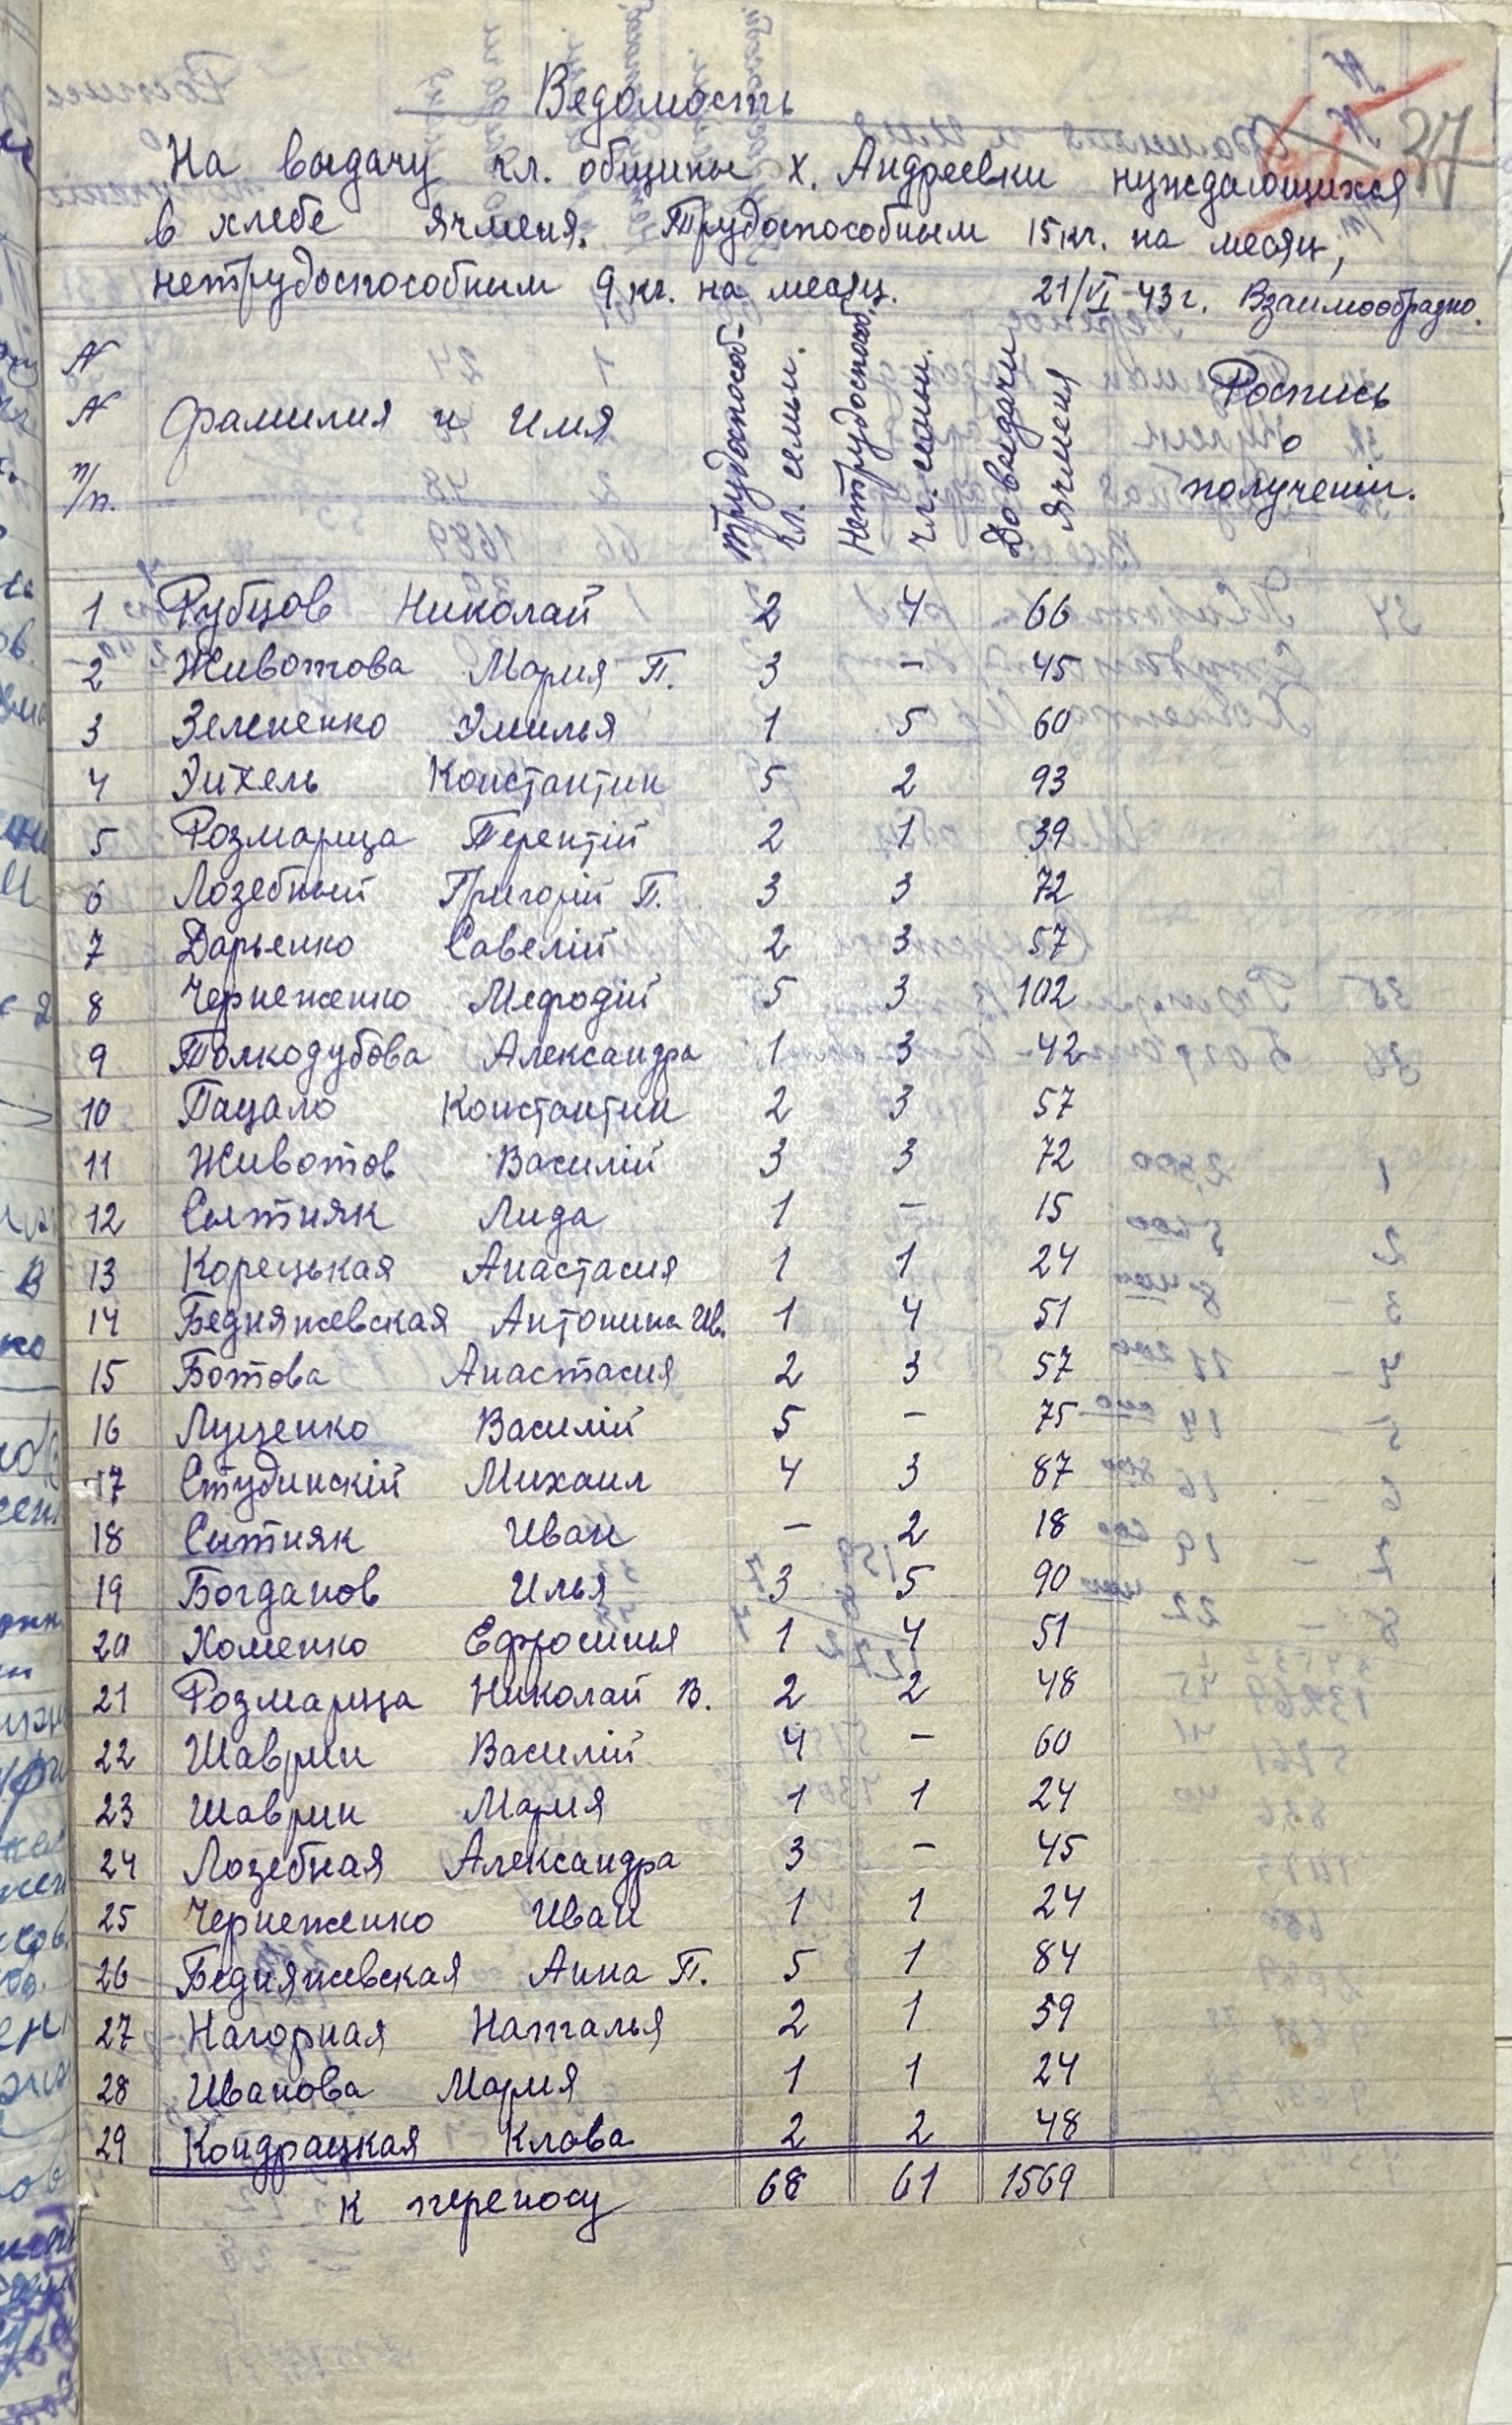 37
Ведомость
На выдачу чл. общины х. Андреевки нуждающихся
в хлебе ячменя. Трудоспособным 15 кг. на месяц,
нетрудоспособным 9 кг. на месяц. 21/VI-43 г. Взаимообразно.
N N п/п. Фамилия и Имя Трудоспособ- чл. семьи. Нетрудоспособ. чл. семьи. До выдачи ячменя Роспись о получении.
1 Рубцов Николай 2 4 66
2 Животова Мария П. 3 – 45
3 Зелененко Эмилья 1 5 60
4 Эихель Константин 5 2 93
5 Розмарица Терентій 2 1 39
6 Лозебный Григорій П. 3 3 72
7 Дарьенко Савелій 2 3 57
8 Чернеженко Мефодій 5 3 102
9 Толкодубова Александра 1 3 42
10 Пацало Константин 2 3 57
11 Животов Василій 3 3 72
12 Сытняк Лида 1 – 15
13 Корецькая Анастасия 1 1 24
14 Бедняжевская Антонина Ив. 1 4 51
15 Ботова Анастасия 2 3 57
16 Луценко Василій 5 – 75
17 Студинскій Михаил 4 3 87
18 Сытняк Иван – 2 18
19 Богданов Илья 3 5 90
20 Хоменко Ефросинья 1 4 51
21 Розмарица Николай В. 2 2 48
22 Шаврин Василій 4 – 60
23 Шаврин Мария 1 1 24
24 Лозебная Александра 3 – 45
25 Чернеженко Иван 1 1 24
26 Бедняжевская Анна П. 5 1 84
27 Нагорная Наталья 2 1 39
28 Иванова Мария 1 1 24
29 Кондрацкая Клава 2 2 48
к переносу 68 61 1569